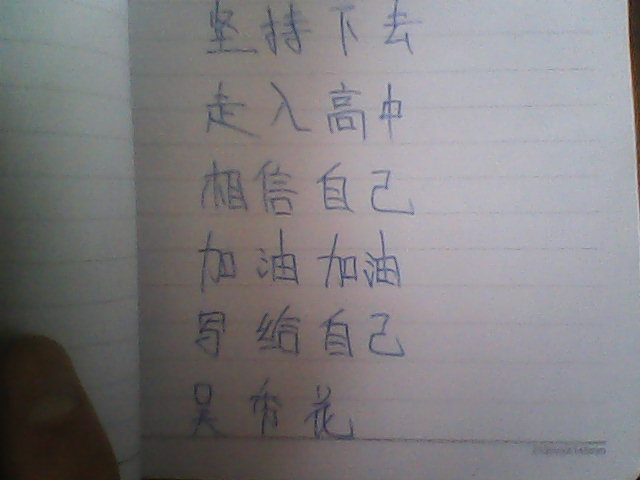 坚持下去
走入高中
相信自己
加油加油
写给自己
吴秀花